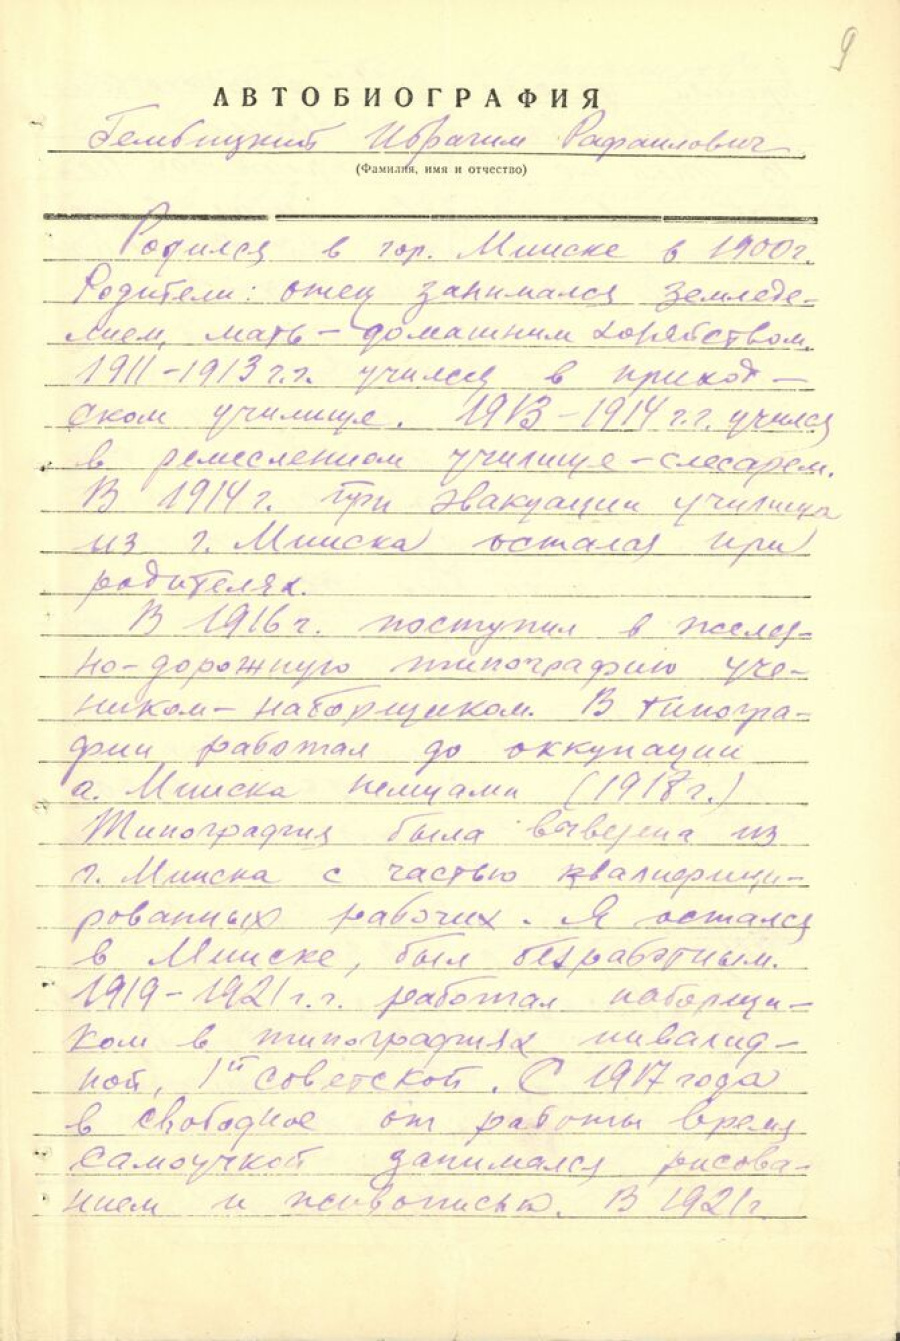 9
АВТОБИОГРАФИЯ
Гембицкий Ибрагим Рафаилович
(Фамилия, имя и отчество)
Родился в гор. Минске в 1900г.
Родители: отец занимался земледе-
лием, мать – домашним хозяйством.
1911–1913 г.г. учился в приход –
ском училище. 1913–1914 г.г. учился
в ремесленном училище – слесарем.
В 1914г. при эвакуации училища
из г. Минска остался при
родителях.
В 1916г. поступил в желез-
но-дорожную типографию уче-
ником – наборщиком. В типогра-
фии работал до оккупации
г. Минска немцами (1918г.)
Типография была вывезена из
г. Минска с частью квалифици-
рованных рабочих. Я остался
в Минске, был безработным.
1919–1921 г.г. работал наборщи-
ком в типографиях инвалид-
ной, 1й советской. С 1917 года
в свободное от работы время
самоучкой занимался рисова-
нием и живописью. В 1921г